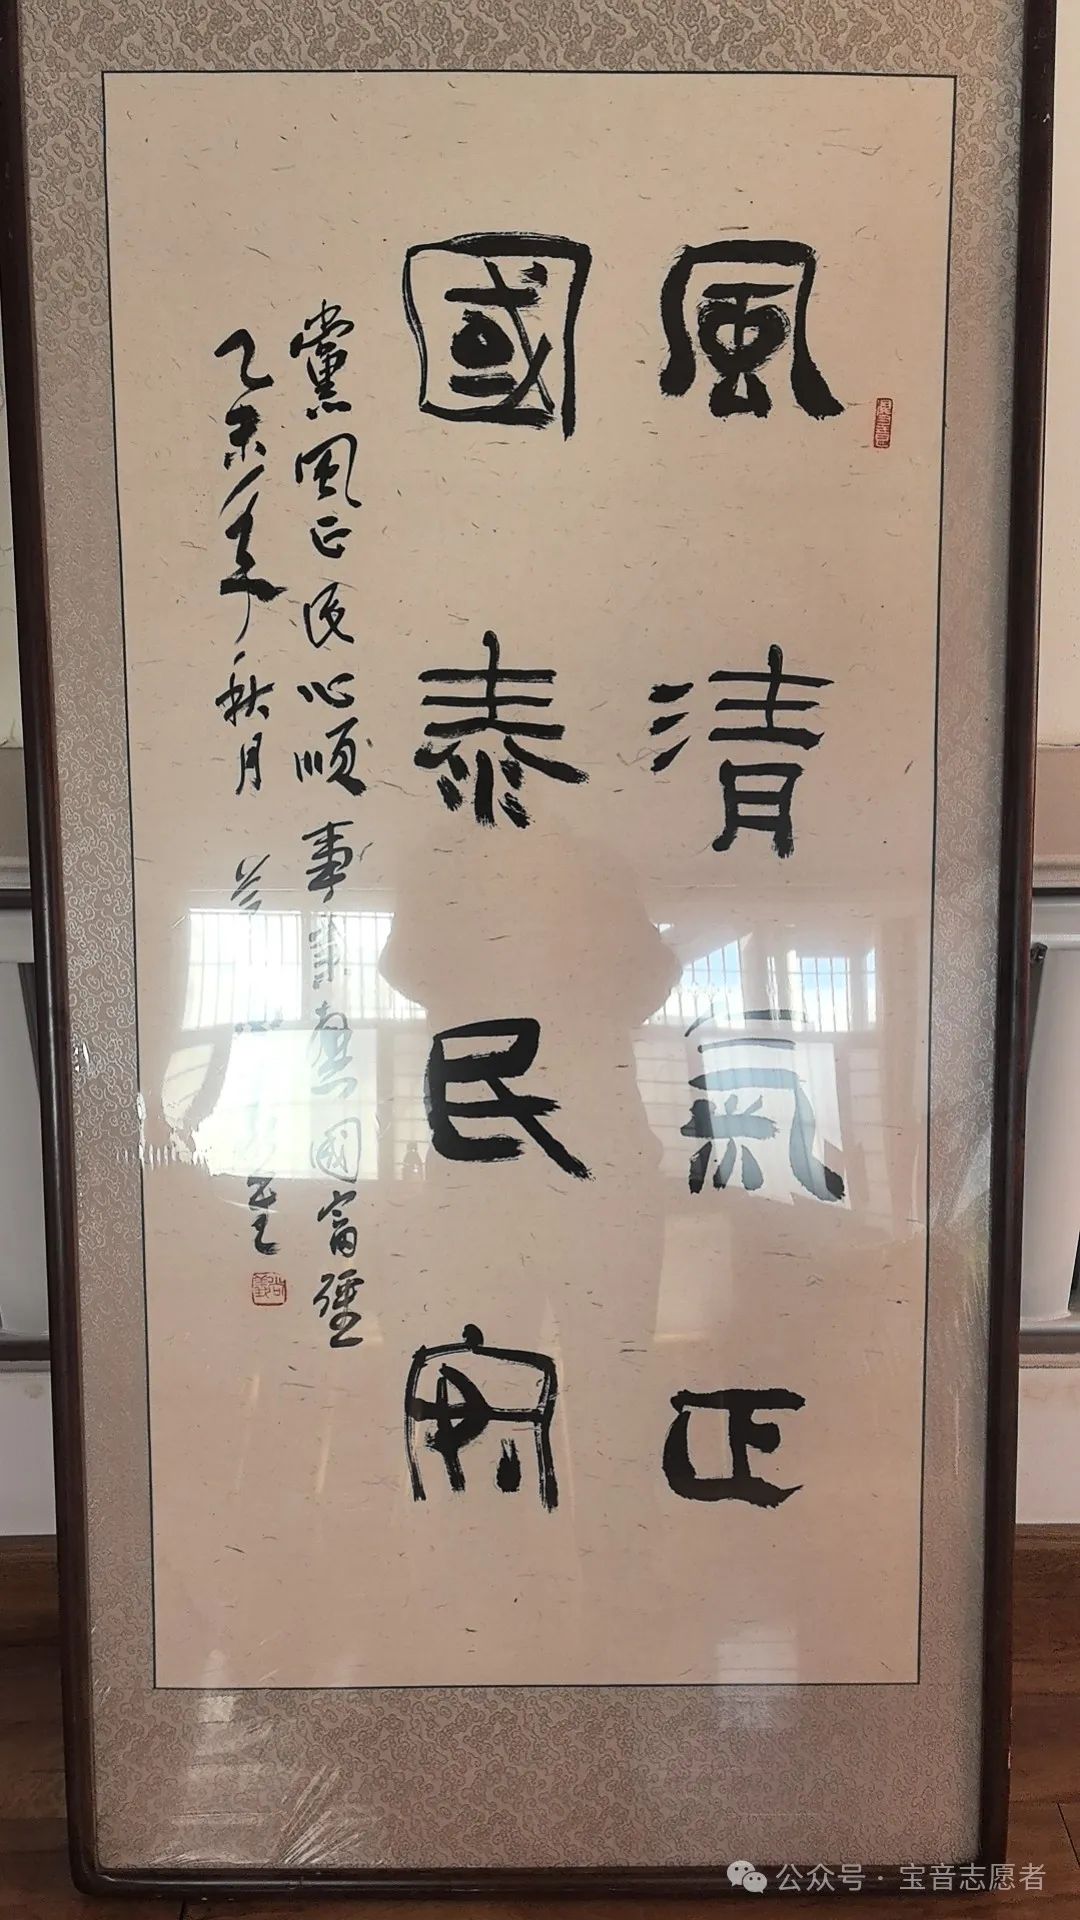 風清氣正
國泰民安
黨風正民心順事業興國富彊
乙未年秋月
公众号·宝音志愿者